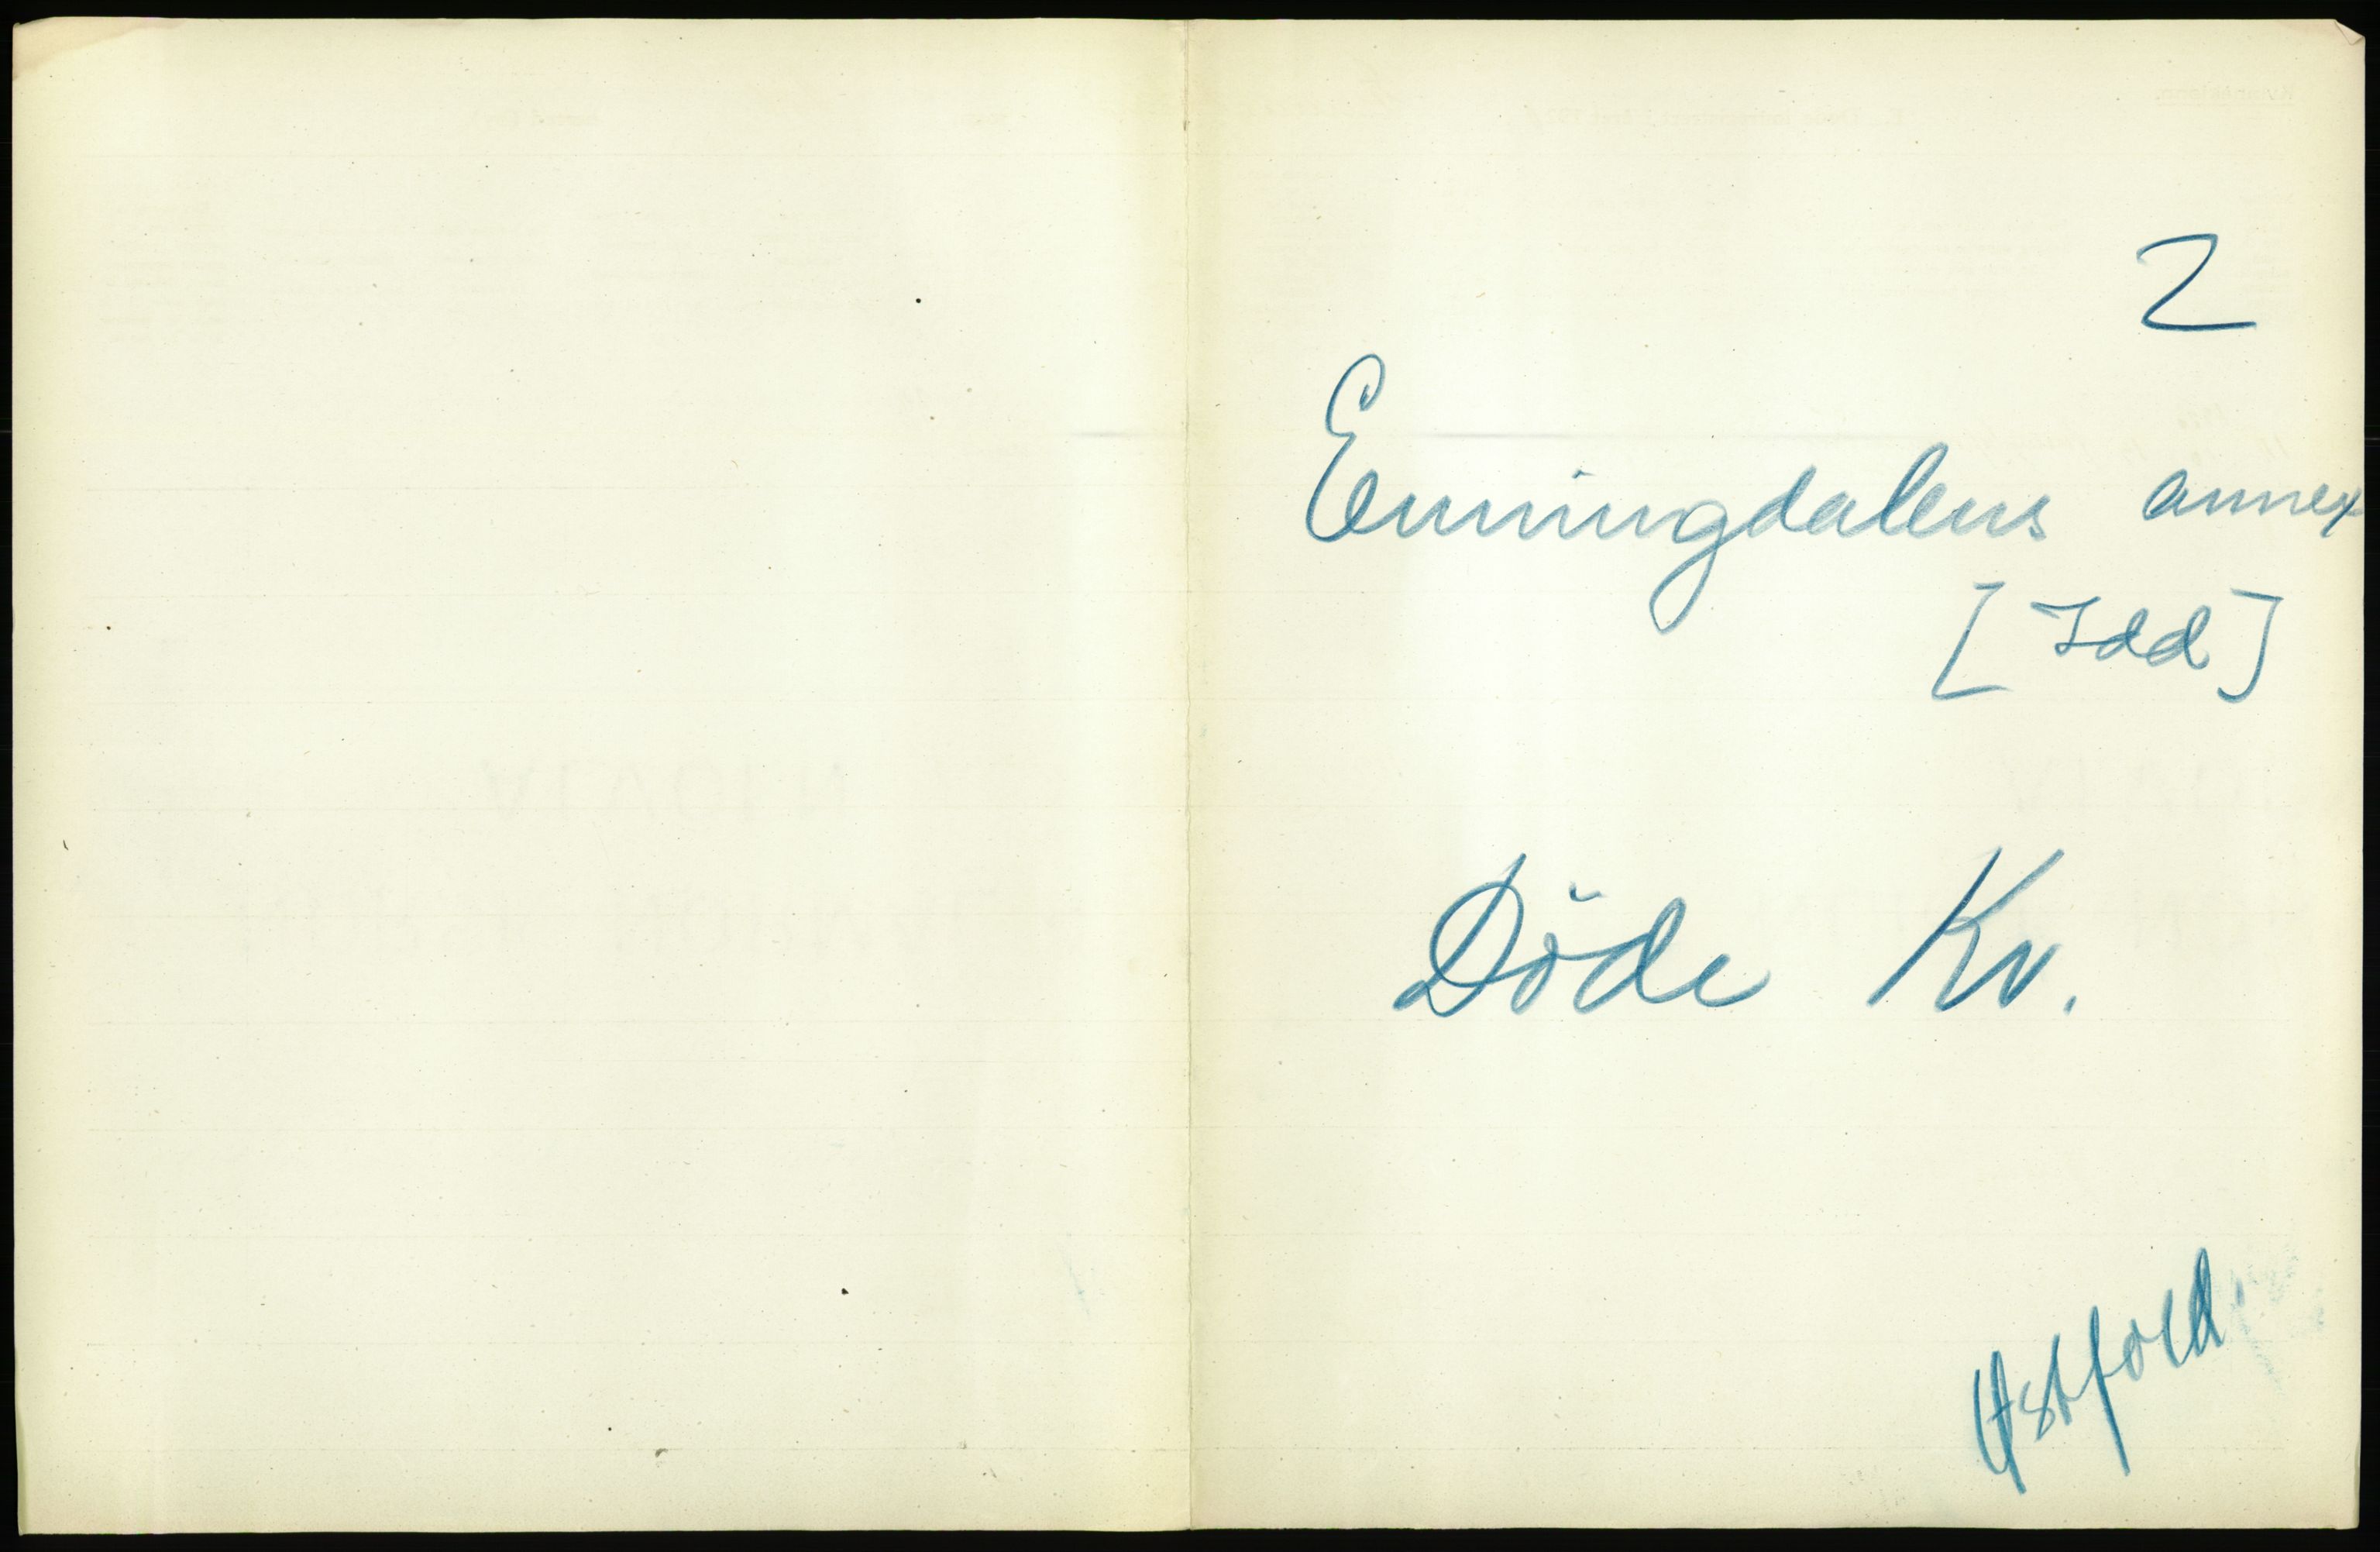 2
Enningdalens annex
[Idd]
Döde Kv.
Østfold.